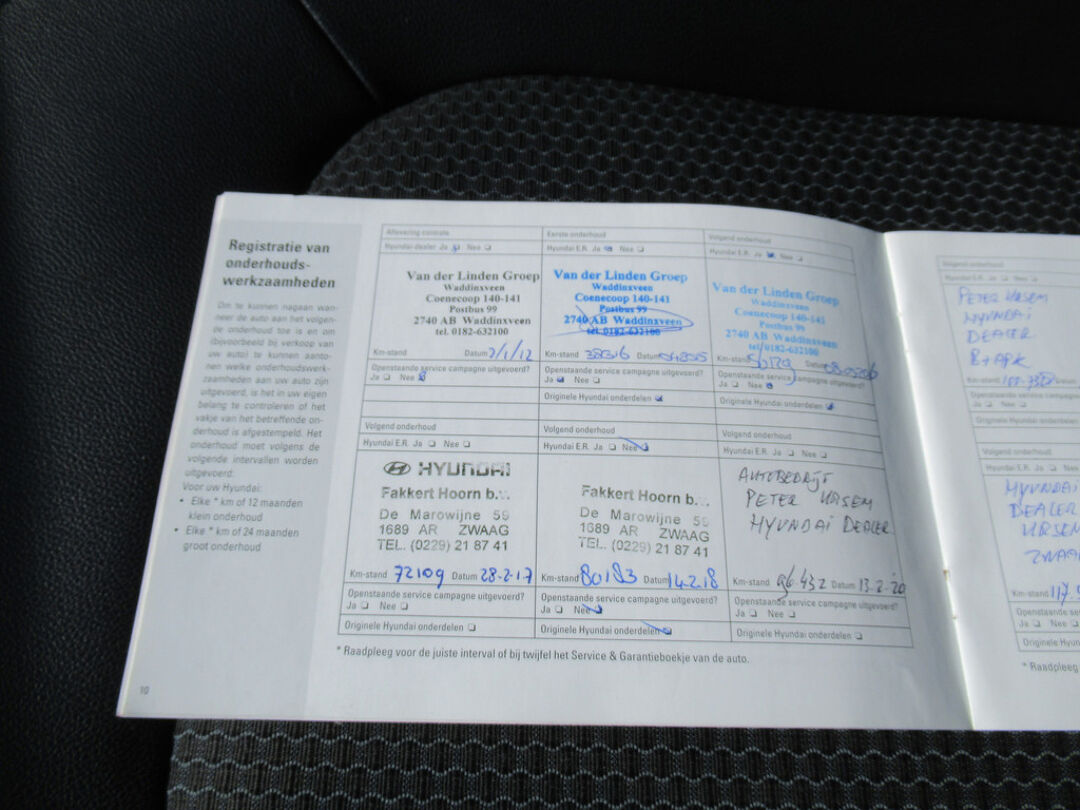 Registratie van
onderhouds-
werkzaamheden
Om te kunnen nagaan wan-
neer de auto aan het volgen-
de onderhoud toe is en om
(bijvoorbeeld bij verkoop van
uw auto) te kunnen aanto-
nen welke onderhoudswerk-
zaamheden aan uw auto zijn
uitgevoerd, is het in uw eigen
belang te controleren of het
vakje van het betreffende on-
derhoud is afgestempeld. Het
onderhoud moet volgens de
volgende intervallen worden
uitgevoerd:
Voor uw Hyundai:
• Elke * km of 12 maanden
klein onderhoud
• Elke * km of 24 maanden
groot onderhoud
10
Aflevering controle
Hyundai dealer Ja Nee
Van der Linden Groep
Waddinxveen
Coenecoop 140-141
Postbus 99
2740 AB Waddinxveen
tel. 0182-632100
Km-stand Datum 2/1/12
Openstaande service campagne uitgevoerd?
Ja Nee
Eerste onderhoud
Hyundai E.R. Ja Nee
Van der Linden Groep
Waddinxveen
Coenecoop 140-141
Postbus 99
2740 AB Waddinxveen
tel. 0182-632100
Km-stand 38316 Datum
Openstaande service campagne uitgevoerd?
Ja Nee
Originele Hyundai onderdelen
Volgend onderhoud
Hyundai E.R. Ja Nee
Van der Linden Groep
Waddinxveen
Coenecoop 140-141
Postbus 99
2740 AB Waddinxveen
tel. 0182-632100
Km-stand Datum
Openstaande service campagne uitgevoerd?
Ja Nee
Originele Hyundai onderdelen
Volgend onderhoud
Hyundai E.R. Ja Nee
HYUNDAI
Fakkert Hoorn b.v.
De Marowijne 59
1689 AR ZWAAG
TEL. (0229) 21 87 41
Km-stand 72109 Datum 28-2-17
Openstaande service campagne uitgevoerd?
Ja Nee
Originele Hyundai onderdelen
Volgend onderhoud
Hyundai E.R. Ja Nee
Fakkert Hoorn b.v.
De Marowijne 59
1689 AR ZWAAG
TEL. (0229) 21 87 41
Km-stand 80183 Datum 14.2.18
Openstaande service campagne uitgevoerd?
Ja Nee
Originele Hyundai onderdelen
Volgend onderhoud
Hyundai E.R. Ja Nee
AUTOBEDRIJF
PETER URSEM
HYUNDAI DEALER
Km-stand 96.432 Datum 13-2-20
Openstaande service campagne uitgevoerd?
Ja Nee
Originele Hyundai onderdelen
* Raadpleeg voor de juiste interval of bij twijfel het Service & Garantieboekje van de auto.
Volgend onderhoud
Hyundai E.R. Ja Nee
PETER URSEM
HYUNDAI
DEALER
B+APK
Km-stand Datum
Openstaande service
Ja Nee
Originele Hyundai
Volgend onderhoud
Hyundai E.R. Ja Nee
HYUNDAI
DEALER
URSEM
ZWAAG
Km-stand 117.
Openstaande
Ja Nee
Originele Hyundai
* Raadpleeg